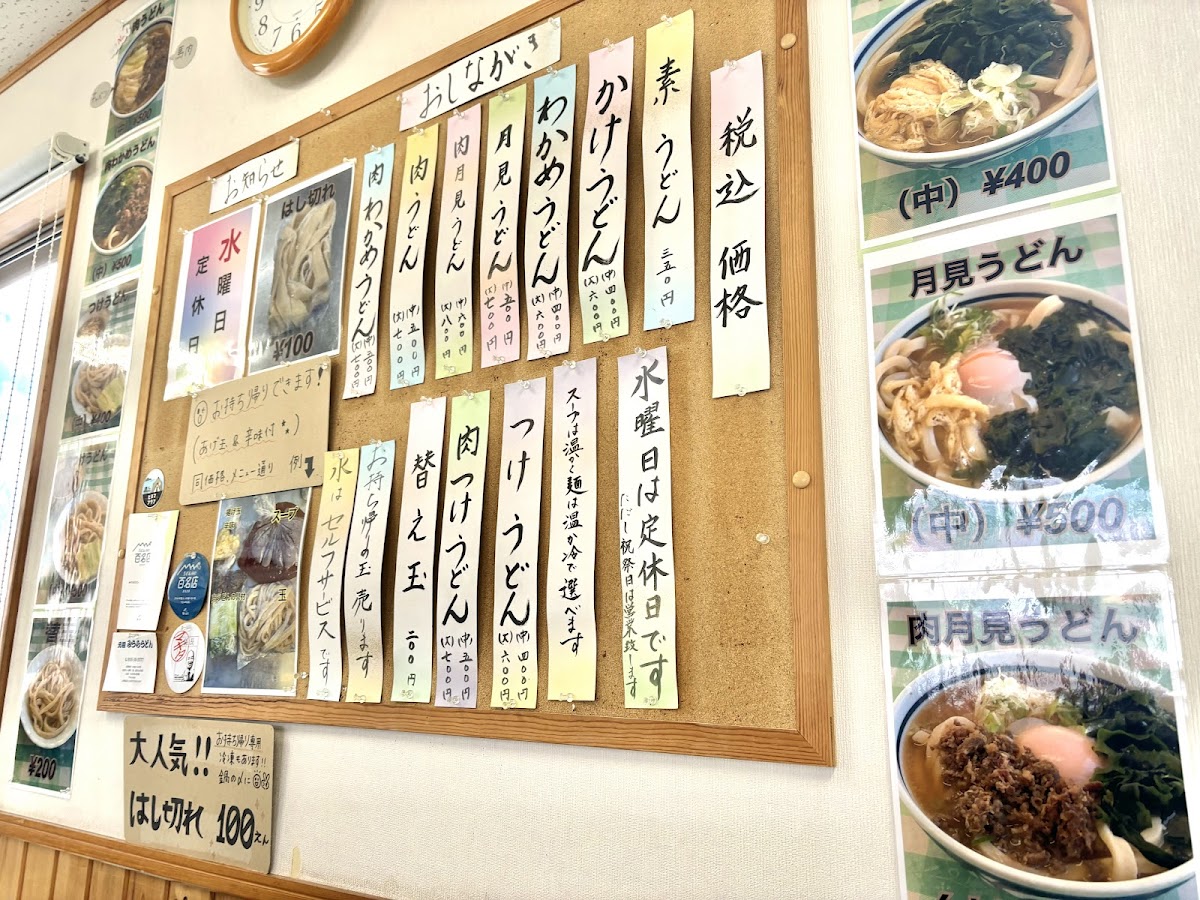 おしながき
税込価格
素うどん 三五〇円
かけうどん (中)四〇〇円 (大)六〇〇円
わかめうどん (中)四〇〇円 (大)六〇〇円
月見うどん (中)五〇〇円 (大)七〇〇円
肉月見うどん (中)六〇〇円 (大)八〇〇円
肉うどん (中)五〇〇円 (大)七〇〇円
肉わかめうどん (中)五〇〇円 (大)七〇〇円
水曜日は定休日です
ただし祝祭日は営業致します
スープは温かく麺は温か冷で選べます
つけうどん (中)四〇〇円 (大)六〇〇円
肉つけうどん (中)五〇〇円 (大)七〇〇円
替え玉 二〇〇円
お持ち帰りの玉売ります
水はセルフサービスです
お知らせ
水曜日
定休日
はし切れ
¥100
お持ち帰りできます!
(あげ玉&辛味付)
同価格、メニュー通り 例
スープ
玉
百名店
大人気!!
お持ち帰り専用
冷凍もあります!!
はし切れ 100えん
(中) ¥400
月見うどん
(中) ¥500
肉月見うどん
肉うどん
(中) ¥500
肉わかめうどん
(中) ¥500
つけうどん
¥200
9 8 7 6 5